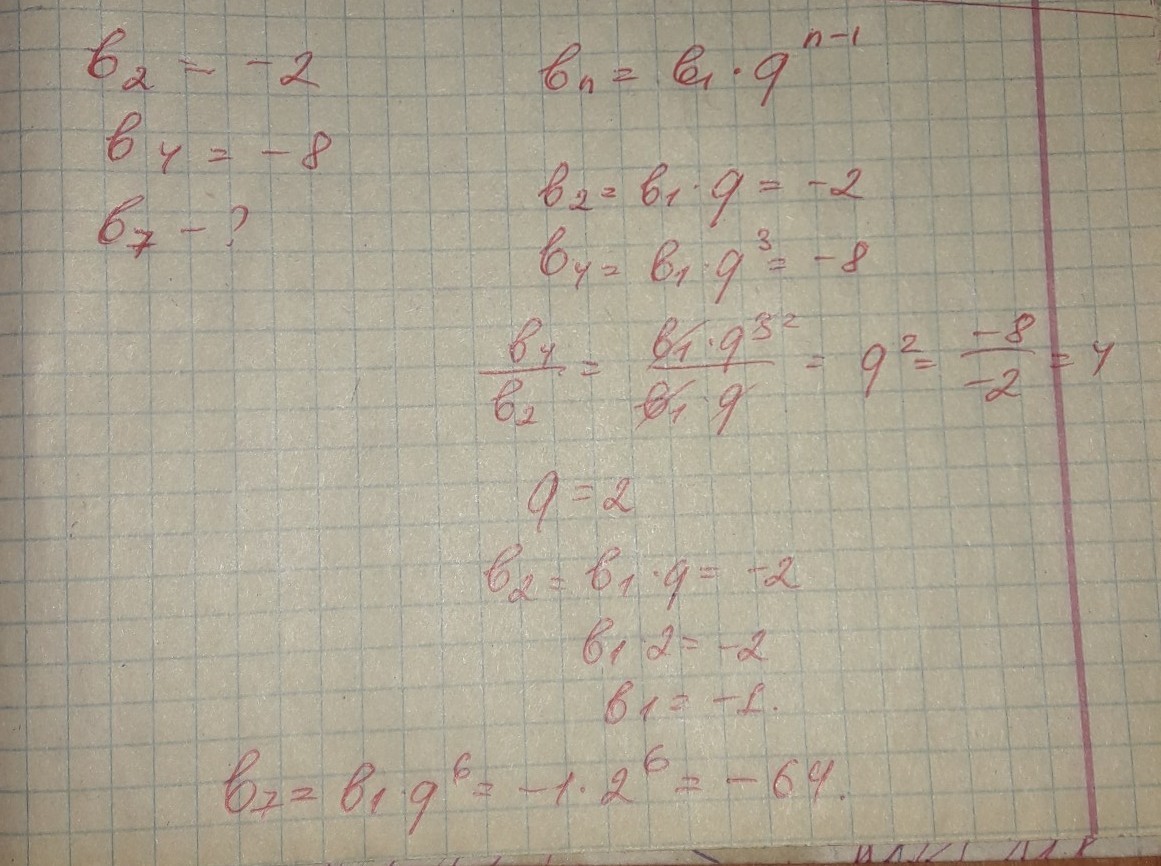 b₂ = -2
b₄ = -8
b₇ - ?
bₙ = b₁ · qⁿ⁻¹
b₂ = b₁ · q = -2
b₄ = b₁ · q³ = -8
b₄/b₂ = b₁ · q³ ²/b₁ · q = q² = -8/-2 = 4
q = 2
b₂ = b₁ · q = -2
b₁ · 2 = -2
b₁ = -1.
b₇ = b₁ · q⁶ = -1 · 2⁶ = -64.